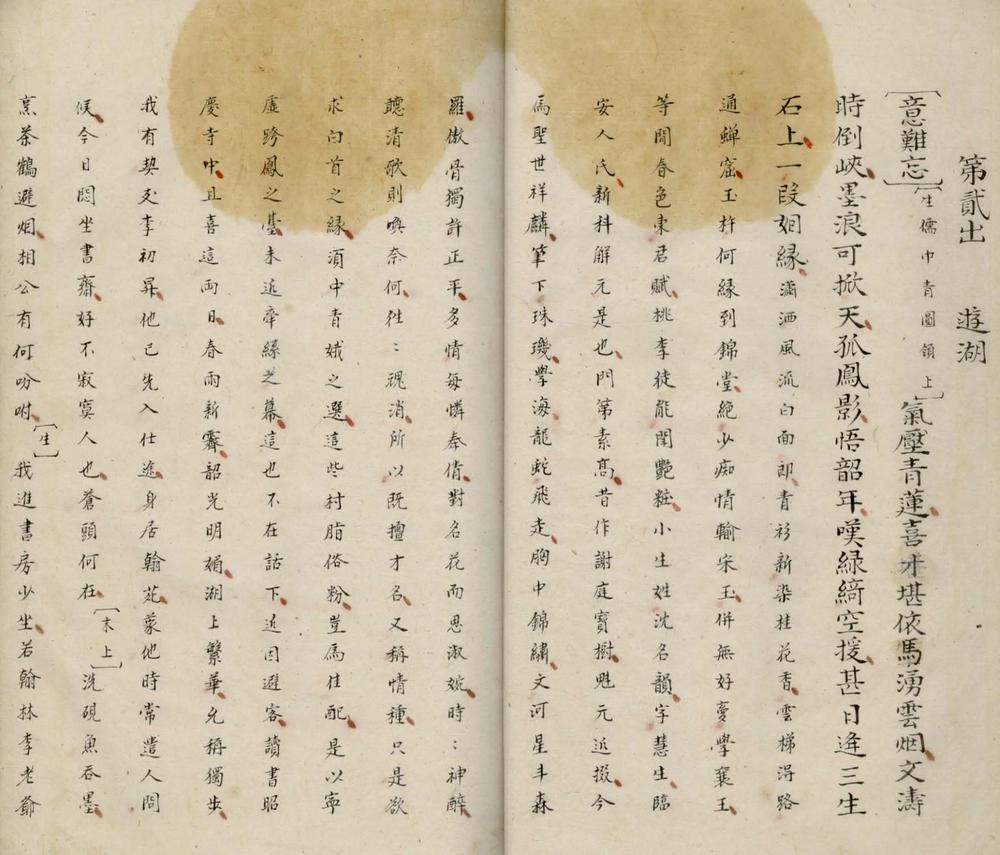 第貳出　　遊湖
［意難忘］［生儒巾青圓領上］氣壓青蓮喜才堪依馬湧雲烟文濤
時倒峽墨浪可掀天孤鳳影悟韶年嘆綠綺空援甚日逢三生
石上一段姻緣瀟洒風流白面郎青衫新染桂花香雲梯淂路
通蟬窟玉杵何緣到錦堂絕少痴情輸宋玉併無好夢學襄王
等閒春色東君賦桃李徒能閗艷粧小生姓沈名韻字慧生臨
安人氏新科解元是也門第素高昔作謝庭寶樹魁元近掇今
為聖世祥麟筆下珠璣學海龍蛇飛走胸中錦繡文河星斗森
羅傲骨獨許正平多情每憐奉倩對名花而思淑婉時〻神醉
聽清歌則喚奈何徃〻魂消所以既擅才名又稱情種只是欲
求白首之緣須中青娥之選這些村脂俗粉豈爲佳配是以寧
虛跨鳳之臺未近牽絲之幕這也不在話下近因避客讀書昭
慶寺中且喜這兩日春雨新霽韶光明媚湖上繁華允稱獨步
我有契友李初昇他已先入仕進身居翰苑蒙他時常遣人問
候今日悶坐書齋好不寂寞人也蒼頭何在［末上］洗硯魚吞墨
烹茶鶴避烟相公有何吩咐［生］我進書房少坐若翰林李老爺